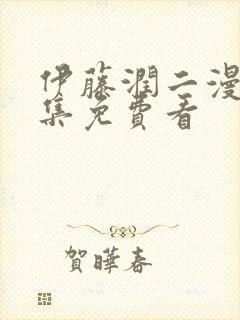 伊藤潤二漫
集免費看
賀曄春